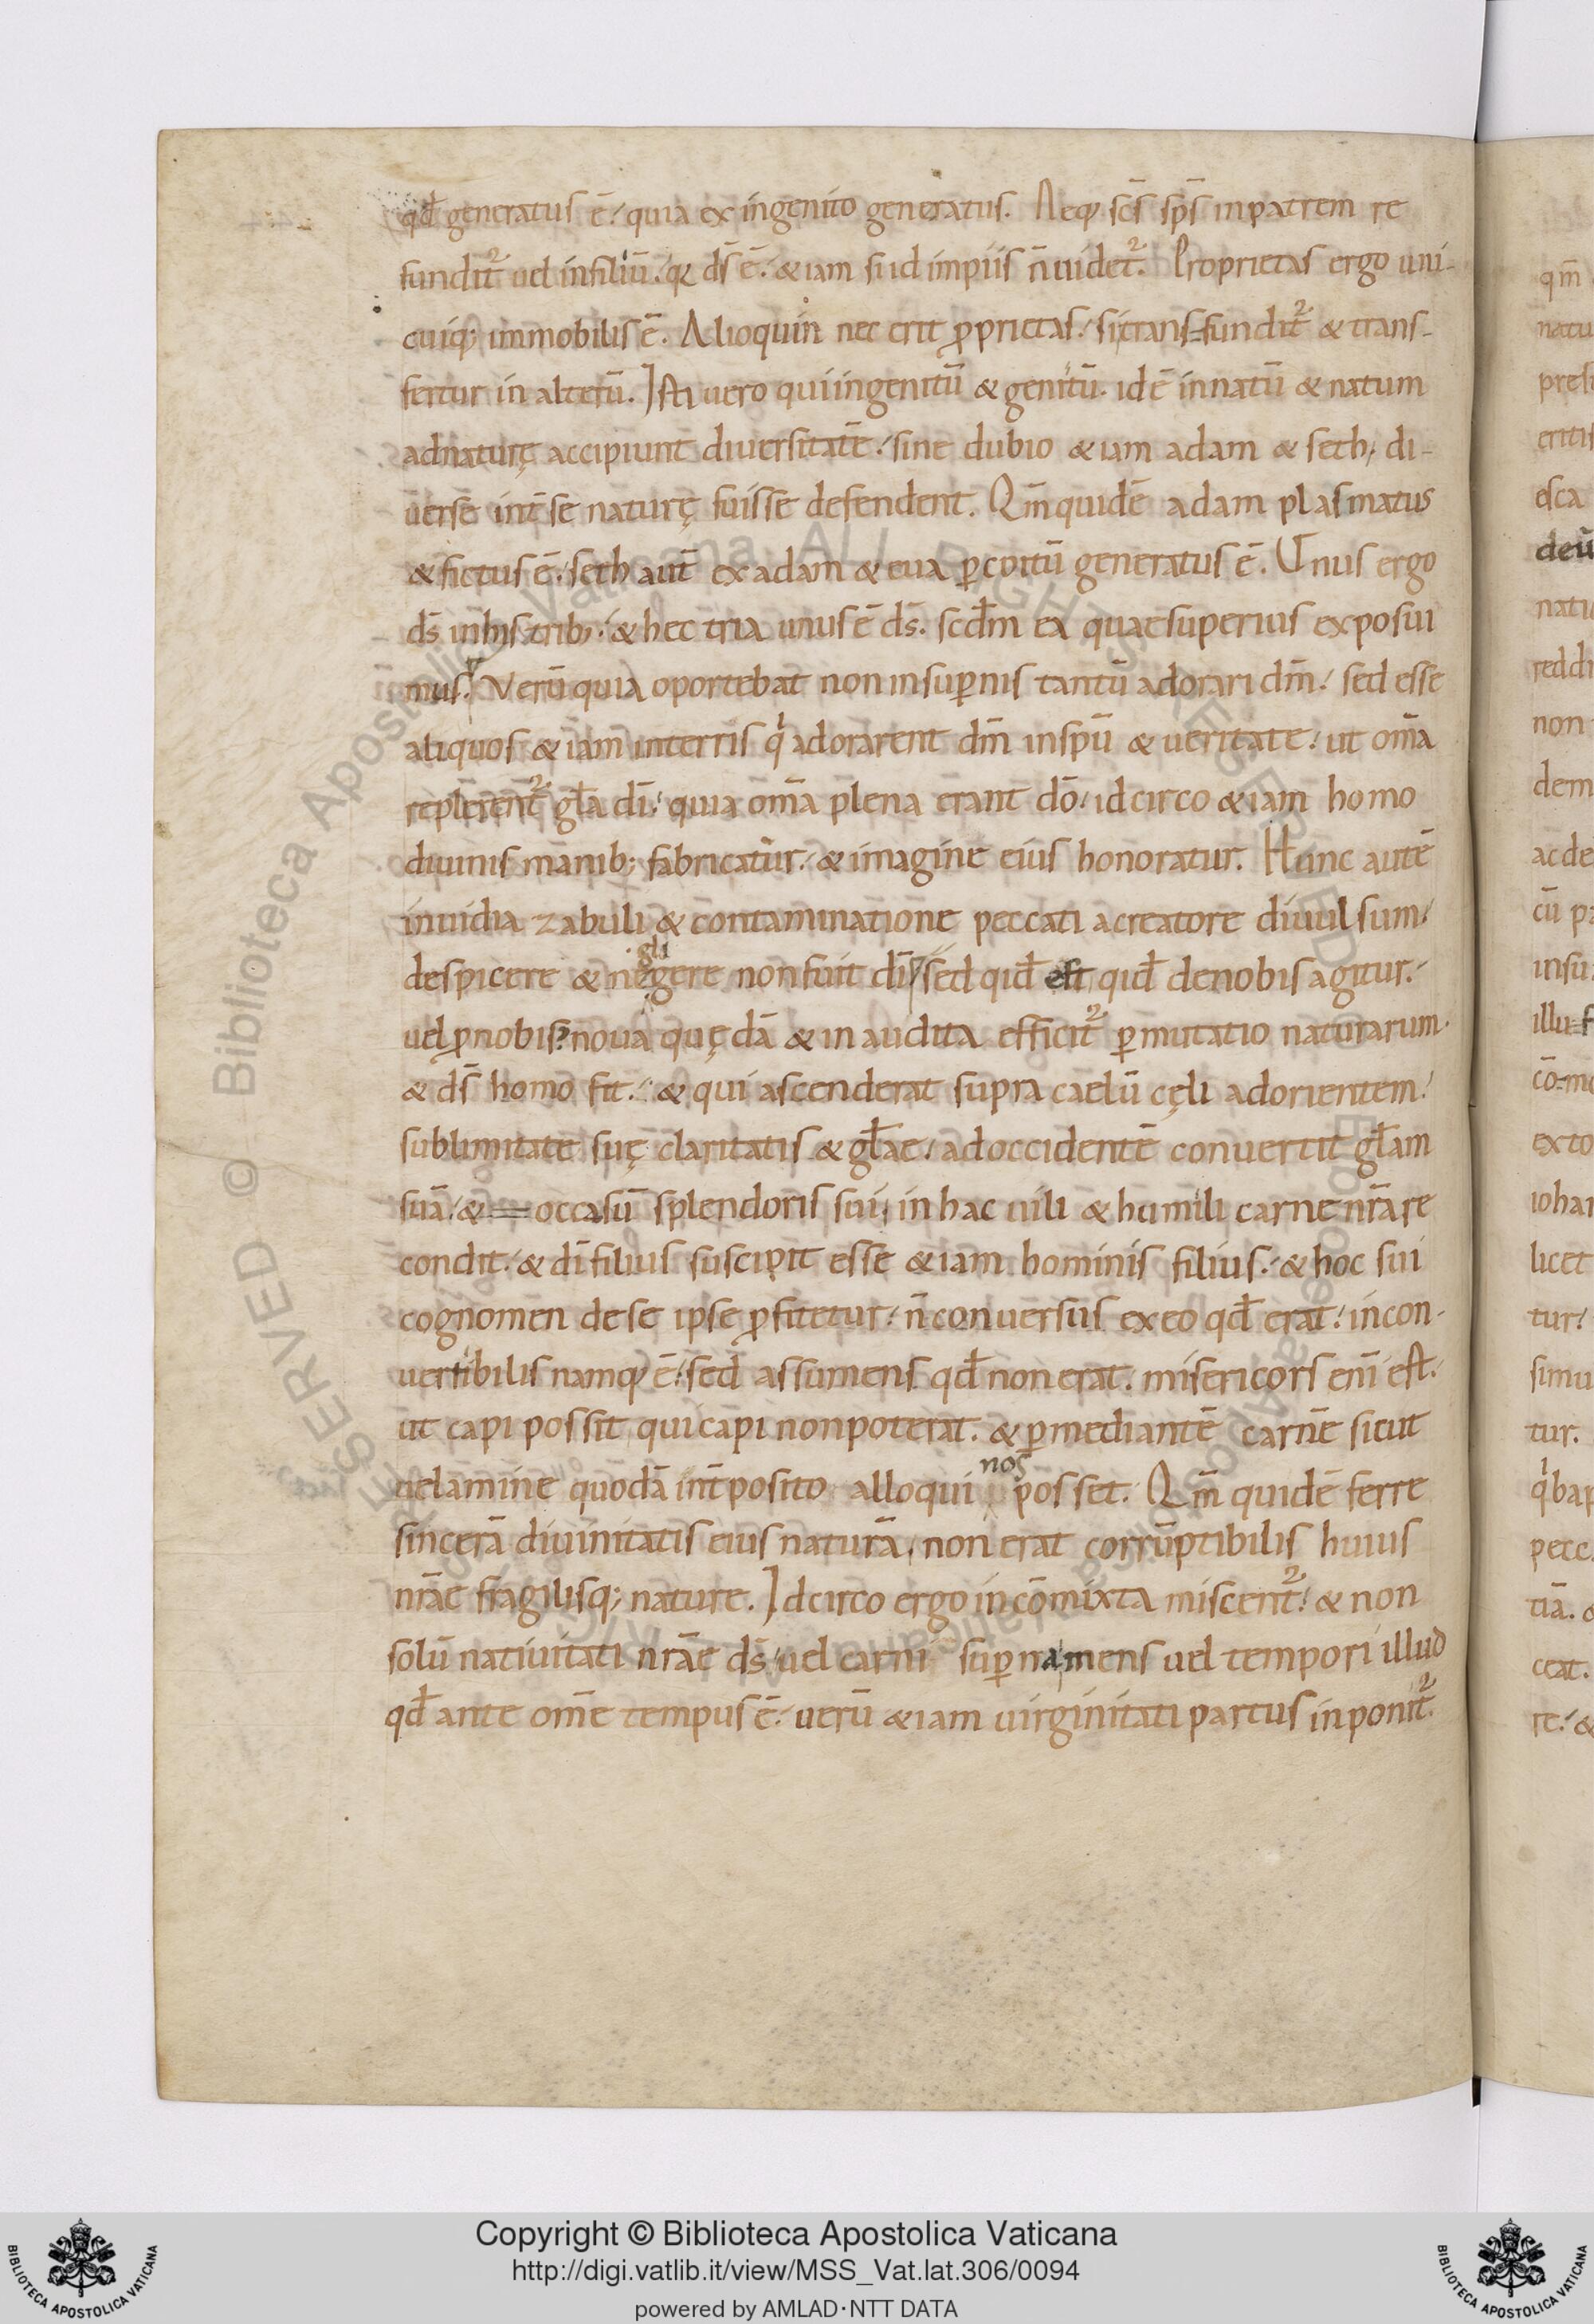 qđ generatus ē. quia ex ingenito generatus. Aeq; scs̄ sps̄ inpatrem re
fundit᷑ uel infiliū. q; ds̄ ē. & iam si id impiis n̄ uidet᷑. Proprietas ergo uni-
cuiq; immobilis ē. Alioquin nec erit ꝓprietas. si transfundit᷑ & trans-
fertur in alterū. Isti uero qui ingenitū & genitū. id ē innatū & natum
ad naturę accipiunt diuersitatē. sine dubio & iam adam & seth, di-
uerse int̄ se naturę fuisse defendent. Qm̄ quidē adam plasmatus
& fictus ē. seth aut̄ ex adam & eua ꝑ coitū generatus ē. Vnus ergo
ds̄ in his trib; & hec tria unus ē ds̄. scđm ea quae superius exposui
mus. Verū quia oportebat non insuꝑnis tantū adorari dm̄. sed esse
aliquos & iam interris qͥ adorarent dm̄ inspū & ueritate. ut om̄a
replerent᷑ gła dī. quia om̄a plena erant dō. idcirco & iam homo
diuinis manib; fabricatur. & imagine eius honoratur. Hunc autē
inuidia zabuli & contaminatione peccati acreatore diuulsum.
gli
despicere & negere non fuit dī. sed qid est qid denobis agitur.
uel ꝓ nobis? noua quędā & inaudita efficit᷑ ꝑmutatio naturarum.
& ds̄ homo fit. & qui ascenderat supra caelū cęli adorientem.
sublimitate suę claritatis & głae. ad occidentē conuertit głam
suā. & occasū splendoris sui, in hac uili & humili carne nr̄a re
condit. & dī filius suscipit esse & iam hominis filius. & hoc sui
cognomen de se ipse ꝓfitetur. n̄ conuersus ex eo qđ erat. incon-
uertibilis namq; ē. sed assumens qđ non erat. misericors enī est.
ut capi possit qui capi non poterat. & ꝑ mediantē carnē sicut
nos
uelamine quodā int̄posito alloqui posset. Qm̄ quidē ferre
sincerā diuinitatis eius naturā, non erat corrūptibilis huius
nr̄ae fragilisq; nature. Idcirco ergo incōmixta miscent᷑. & non
solū natiuitati nr̄ae ds̄. uel carni suꝑna mens uel tempori illud
qđ ante om̄e tempus ē. uerū & iam uirginitati partus inponit᷑.
Copyright © Biblioteca Apostolica Vaticana
http://digi.vatlib.it/view/MSS_Vat.lat.306/0094
powered by AMLAD·NTT DATA